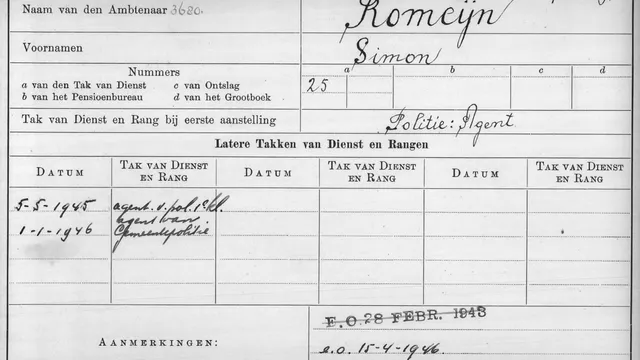 Naam van den Ambtenaar 3620. Romeijn
Voornamen Simon
Nummers a b c d
a van den Tak van Dienst c van Ontslag 25
b van het Pensioenbureau d van het Grootboek
Tak van Dienst en Rang bij eerste aanstelling Politie: Agent
Latere Takken van Dienst en Rangen
DATUM TAK VAN DIENST EN RANG DATUM TAK VAN DIENST EN RANG DATUM TAK VAN DIENST EN RANG
5-5-1945 agent. v. pol. 1e kl.
1-1-1946 agent van Gemeentepolitie
E.O. 28 FEBR. 1943
AANMERKINGEN: e.o. 15-4-1946.